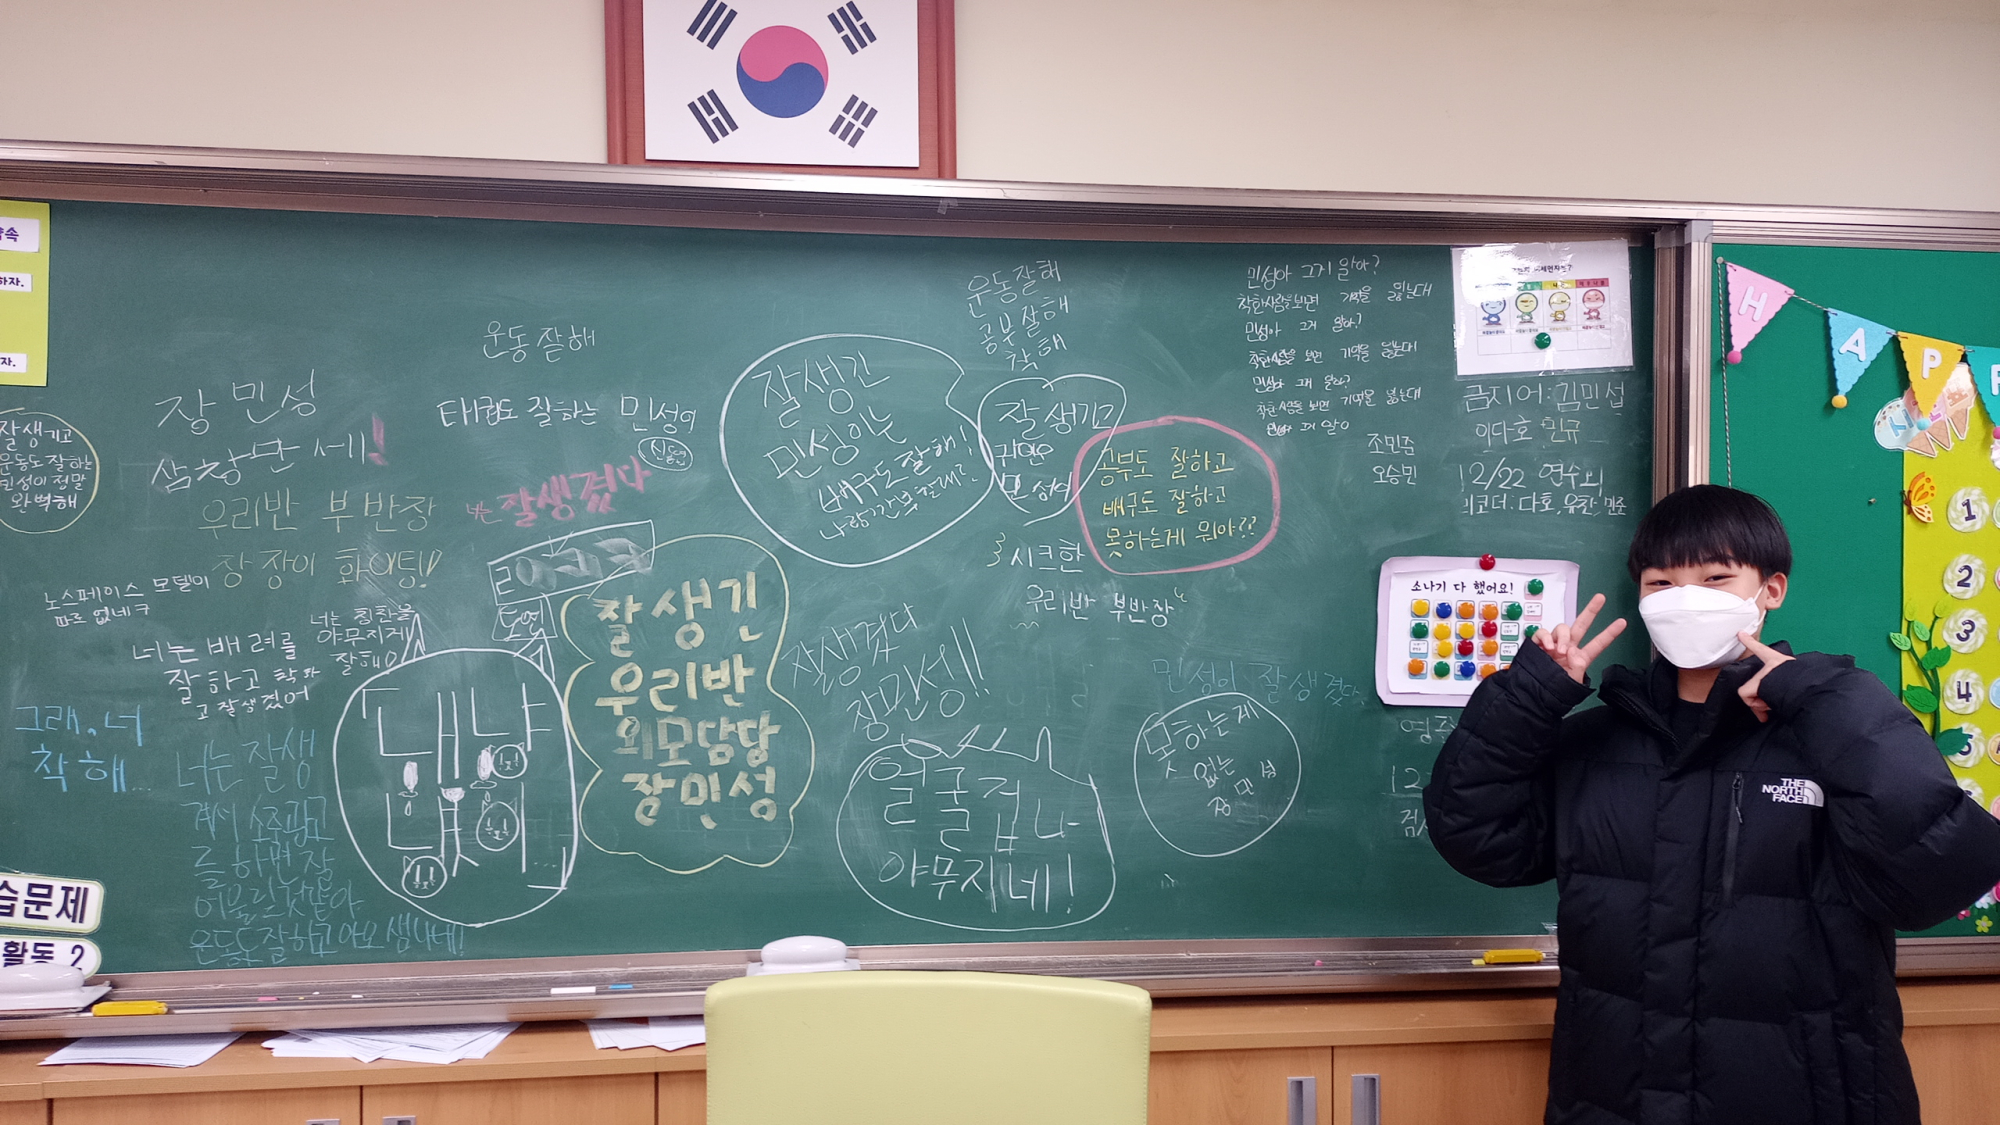 속
하자.
자.
잘생기고
운동도 잘하는
민성이 정말
완벽해
장민성
삼창만세!
우리반 부반장
장장이 화이팅!
노스페이스 모델이
따로 없네ㅋ
너는 배려를
잘하고 착하
고 잘생겼어
너는 칭찬을
야무지게
잘해
그래, 너
착해...
너는 잘생
겨서 소주광고
를 하면 잘
어울릴것같아
운동도 잘하고
습문제
활동 2
운동 잘해
태권도 잘하는 민성이
잘생겼다
도연
잘생긴
우리반
외모담당
장민성
잘생긴
민성이는
배구도 잘해!
나랑 간부 할래?
운동잘해
공부잘해
착해
잘생기고
귀여운
민성이
공부도 잘하고
배구도 잘하고
못하는게 뭐야??
시크한
우리반 부반장
잘생겼다
장민성!!
얼굴 겁나
야무지네!
민성이 잘생겼다.
못하는게
없는
장민성
민성아 그거 알아?
착한사람을보면 기억을 잃는대
민성아 그거 알아?
착한사람을 보면 기억을 잃는대
민성아 그거 알아?
착한사람을 보면 기억을 잃는대
민성아 그거 알아
조민준
오승민
금지어: 김민섭
이다호 민규
12/22 연수외
리코더: 다호, 유찬, 민준
소나기 다 했어요!
12
THE
NORTH
FACE
H A P P
1
2
3
4
5